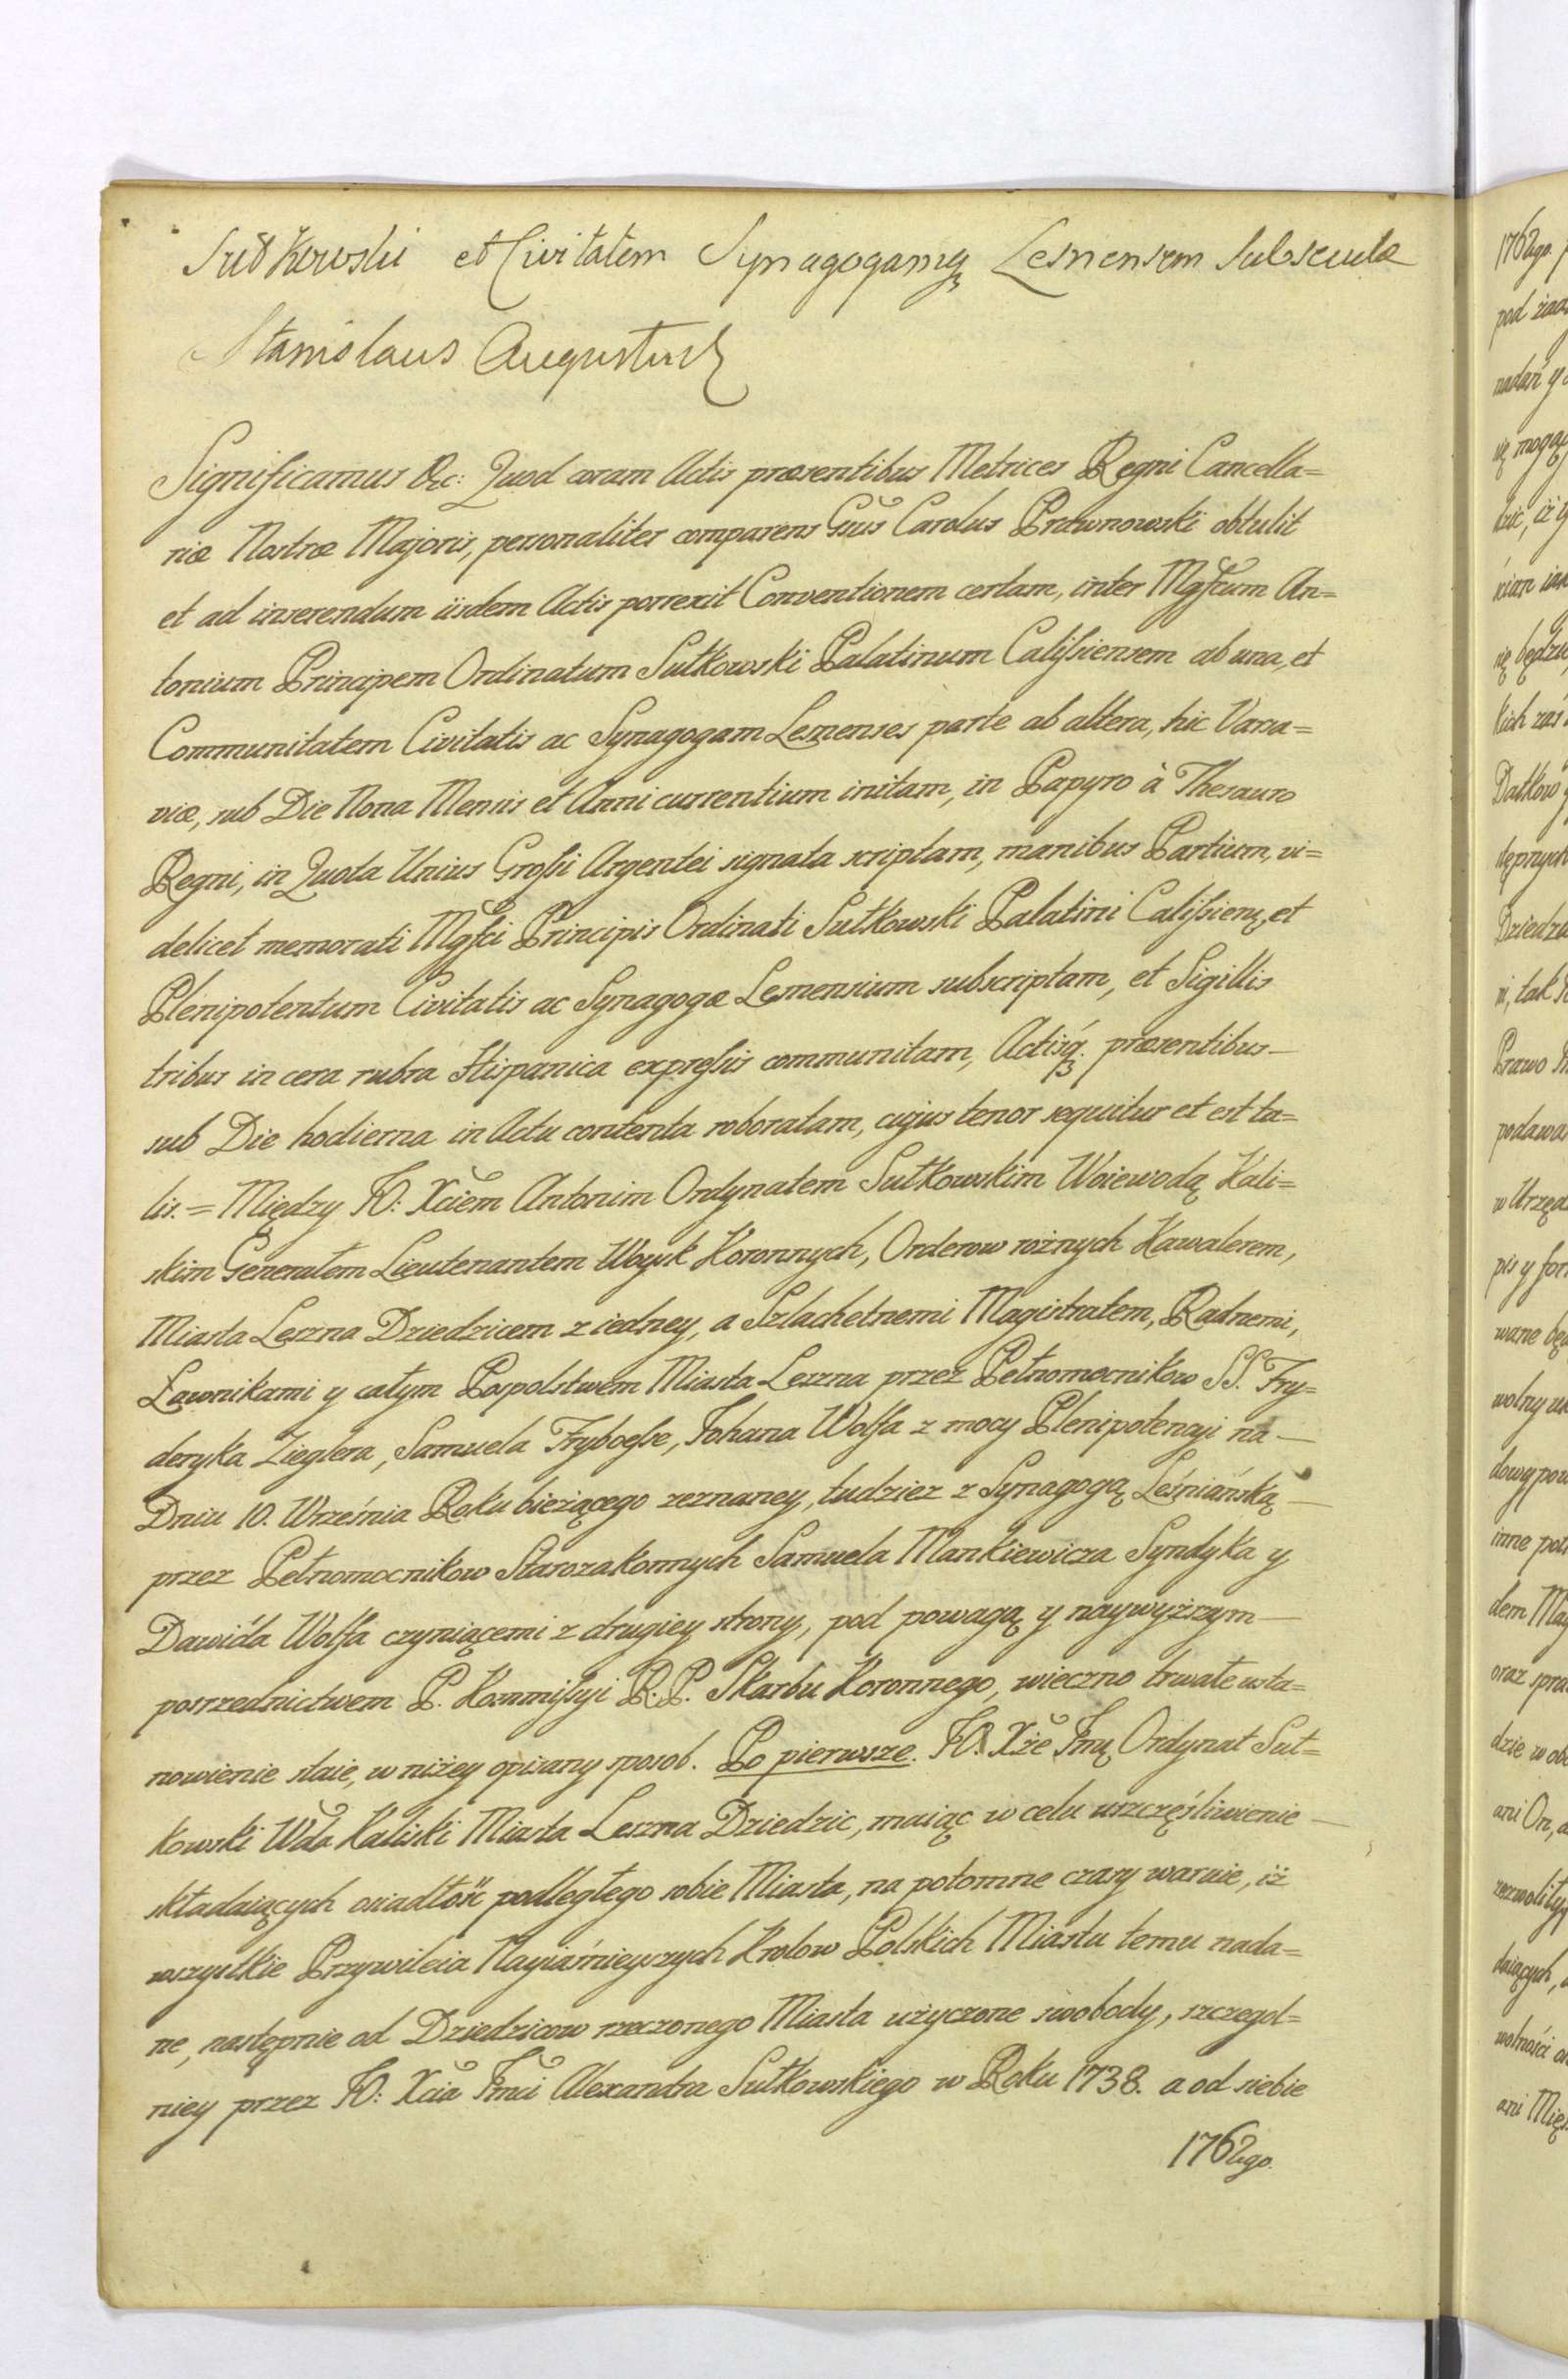 Sułkowski et Civitatem Synagogamq Lesnensem Subsecuta
Stanislaus Augustus
Significamus &c: Quod coram Actis præsentibus Metrices Regni Cancella=
riæ Nostræ Majoris, personaliter comparens Gñus Carolus Prawnowski obtulit
et ad inserendum iisdem Actis porrexit Conventionem certam, inter Mgfcum An=
tonium Principem Ordinatum Sułkowski Palatinum Calissiensem ab una, et
Communitatem Civitatis ac Synagogam Lesnenses parte ab altera, hic Varsa=
viæ, sub Die Nona Mensis et Anni currentium initam, in Papyro à Thesauro
Regni, in Quota Unius Grossi Argentei signata scriptam, manibus Partium, vi=
delicet memorati Mgfci Principis Ordinati Sułkowski Palatini Calissien, et
Plenipotentum Civitatis ac Synagogæ Lesnensium subscriptam, et Sigillis
tribus in cera rubra Hispanica expressis communitam, Actisq. præsentibus—
sub Die hodierna in Actu contenta roboratam, cujus tenor sequitur et est ta=
lis. = Między JO: Xciem Antonim Ordynatem Sułkowskim Woiewodą Kali=
skim Generałem Lieutenantem Woysk Koronnych, Orderow rożnych Kawalerem,
Miasta Leszna Dziedzicem z iedney, a Szlachetnemi Magistratem, Radnemi,
Ławnikami y całym Pospolstwem Miasta Leszna przez Pełnomocnikow SS. Fry=
deryka Zieglera, Samuela Fryboesse, Johana Wolfa z mocy Plenipotencyi na—
Dniu 10. Września Roku bieżącego zeznaney, tudziez z Synagogą Leśniańską—
przez Pełnomocnikow Starozakonnych Samuela Mankiewicza Syndyka y
Dawida Wolfa czyniącemi z drugiey strony, pod powagą y naywyższym—
posrzednictwem P. Kommissyi R. P. Skarbu Koronnego, wieczno trwałe usta=
nowienie staie, w niżey opisany sposob. Po pierwsze. JO. Xże Jmę Ordynat Suł=
kowski Wda Kaliski Miasta Leszna Dziedzic, maiąc w celu uszczęśliwienie—
składaiących osiadłość podległego sobie Miasta, na potomne czasy waruie, iż
wszystkie Przywileia Nayiaśnieyszych Krolow Polskich Miastu temu nada=
ne, następnie od Dziedzicow rzeczonego Miasta użyczone swobody, szczegol=
niey przez JO: Xcia Jmci Alexandra Sułkowskiego w Roku 1738. a od siebie
1762go.